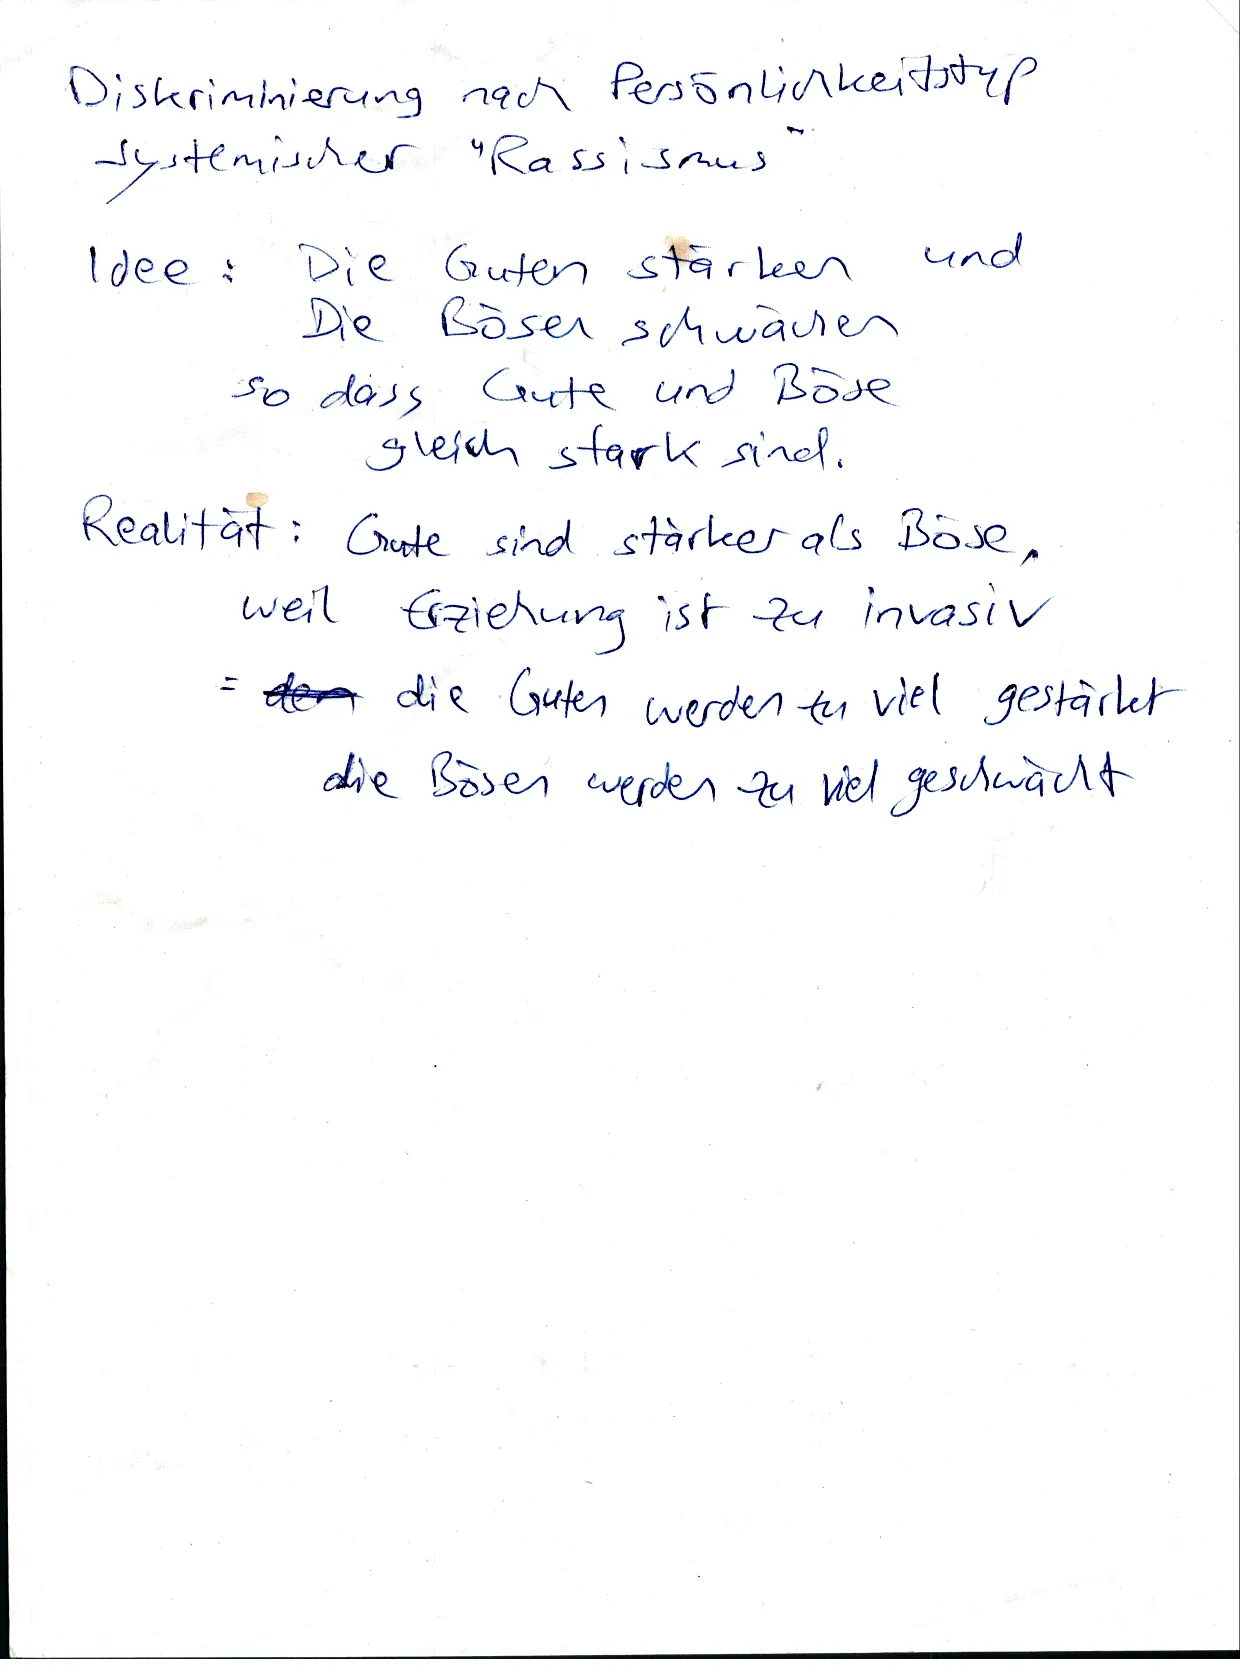 Diskriminierung nach Persönlichkeitstyp
systemischer "Rassismus"
Idee: Die Guten stärken und
Die Bösen schwächen
so dass Gute und Böse
gleich stark sind.
Realität: Gute sind stärker als Böse,
weil Erziehung ist zu invasiv
= die Guten werden zu viel gestärkt
die Bösen werden zu viel geschwächt